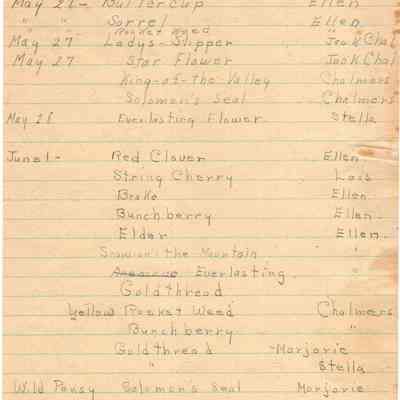 May 27 - Buttercup Ellen
" " Sorrel Ellen
" " Rocket Weed "
May 27 Ladys-Slipper Jack Chal
May 27 Star Flower Jack Chal
King-of-the Valley Chalmers
Solomon's Seal Chalmers
May 28 Everlasting Flower Stella
June 1 - Red Clover Ellen
String Cherry Lois
Brake Ellen
Bunchberry Ellen
Elder Ellen
Snow on the Mountain "
Everlasting "
Goldthread
Yellow Rocket Weed Chalmers
Bunchberry "
Goldthread - Marjorie
" Stella
Wild Pansy Solomon's Seal Marjorie